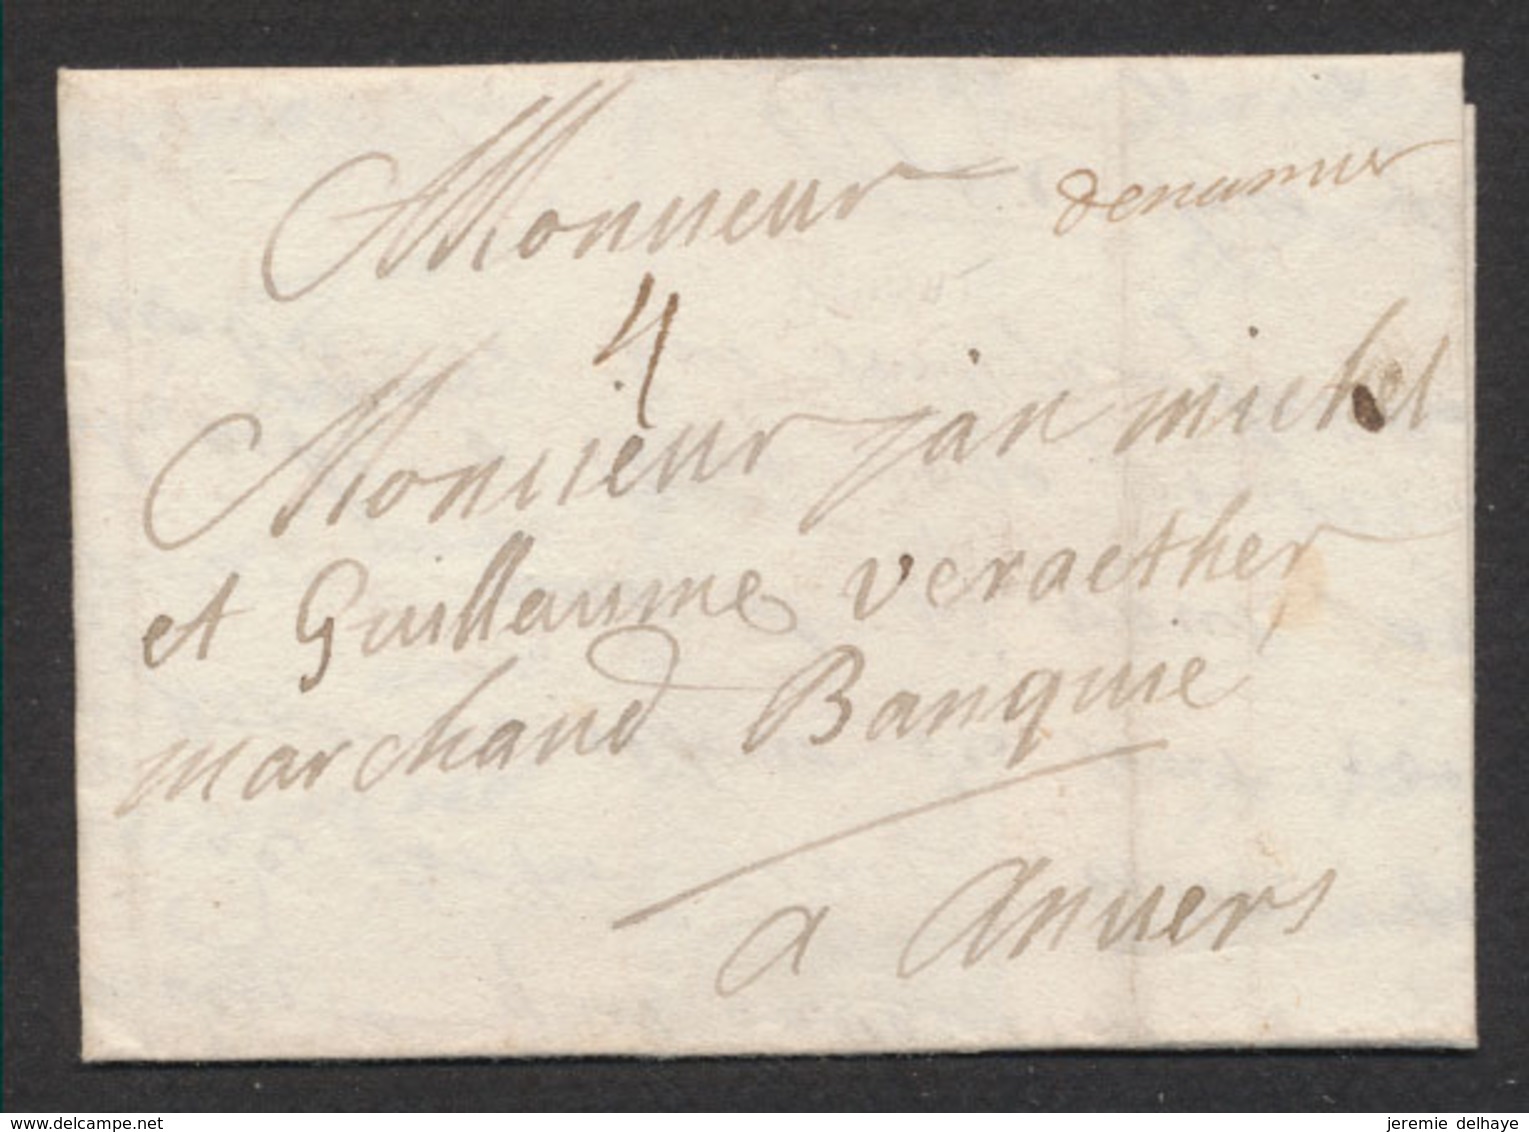 Monsieur denamur
4
Monsieur jan michel
et Guillaume veraether
marchand Banquié
a Anvers
www.delcampe.net
jeremie delhaye